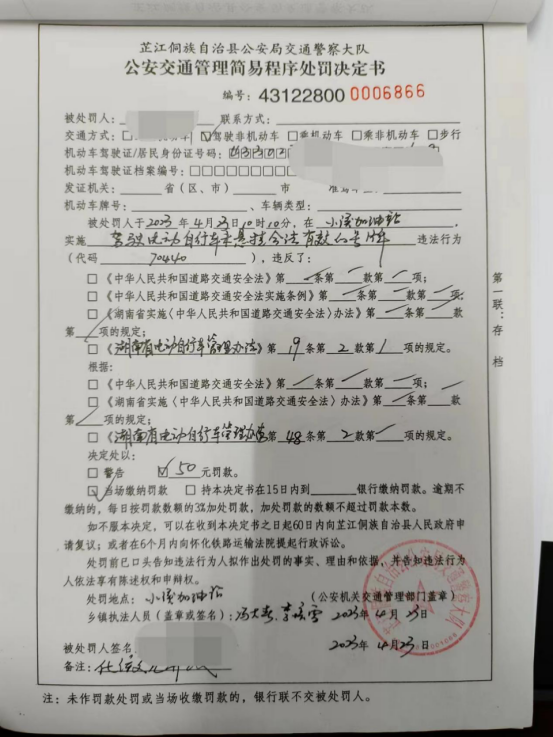 芷江侗族自治县公安局交通警察大队
公安交通管理简易程序处罚决定书
编号：43122800 0006866
被处罚人：联系方式：
交通方式：□ ☑驾驶非机动车 □乘机动车 □乘非机动车 □步行
机动车驾驶证/居民身份证号码：
机动车驾驶证档案编号：
发证机关：省（区、市）市
机动车牌号：、车辆类型：
被处罚人于2023年4月23日10时10分，在小溪加油站，
实施驾驶电动自行车未悬挂合法有效的号牌违法行为
（代码70440），违反了：
□《中华人民共和国道路交通安全法》第条第款第项；
□《中华人民共和国道路交通安全法实施条例》第条第款第项；
□《湖南省实施〈中华人民共和国道路交通安全法〉办法》第条第款
第项的规定；
□《湖南省电动自行车管理办法》第19条第2款第1项的规定。
根据：
□《中华人民共和国道路交通安全法》第条第款第项；
□《湖南省实施〈中华人民共和国道路交通安全法〉办法》第条第款
第项的规定；
□《湖南省电动自行车管理办法》第48条第2款第项的规定。
决定处以：
□ 警告 ☑50元罚款。
☑当场缴纳罚款 □ 持本决定书在15日内到银行缴纳罚款。逾期不
缴纳的，每日按罚款数额的3%加处罚款，加处罚款的数额不超过罚款本数。
如不服本决定，可以在收到本决定书之日起60日内向芷江侗族自治县人民政府申
请复议；或者在6个月内向怀化铁路运输法院提起行政诉讼。
处罚前已口头告知违法行为人拟作出处罚的事实、理由和依据，并告知违法行为
人依法享有陈述权和申辩权。
处罚地点：小溪加油站（公安机关交通管理部门盖章）
乡镇执法人员（盖章或签名）：2023年4月23日
被处罚人签名 2023年4月23日
备注：
注：未作罚款处罚或当场收缴罚款的，银行联不交被处罚人。
第一联：存档